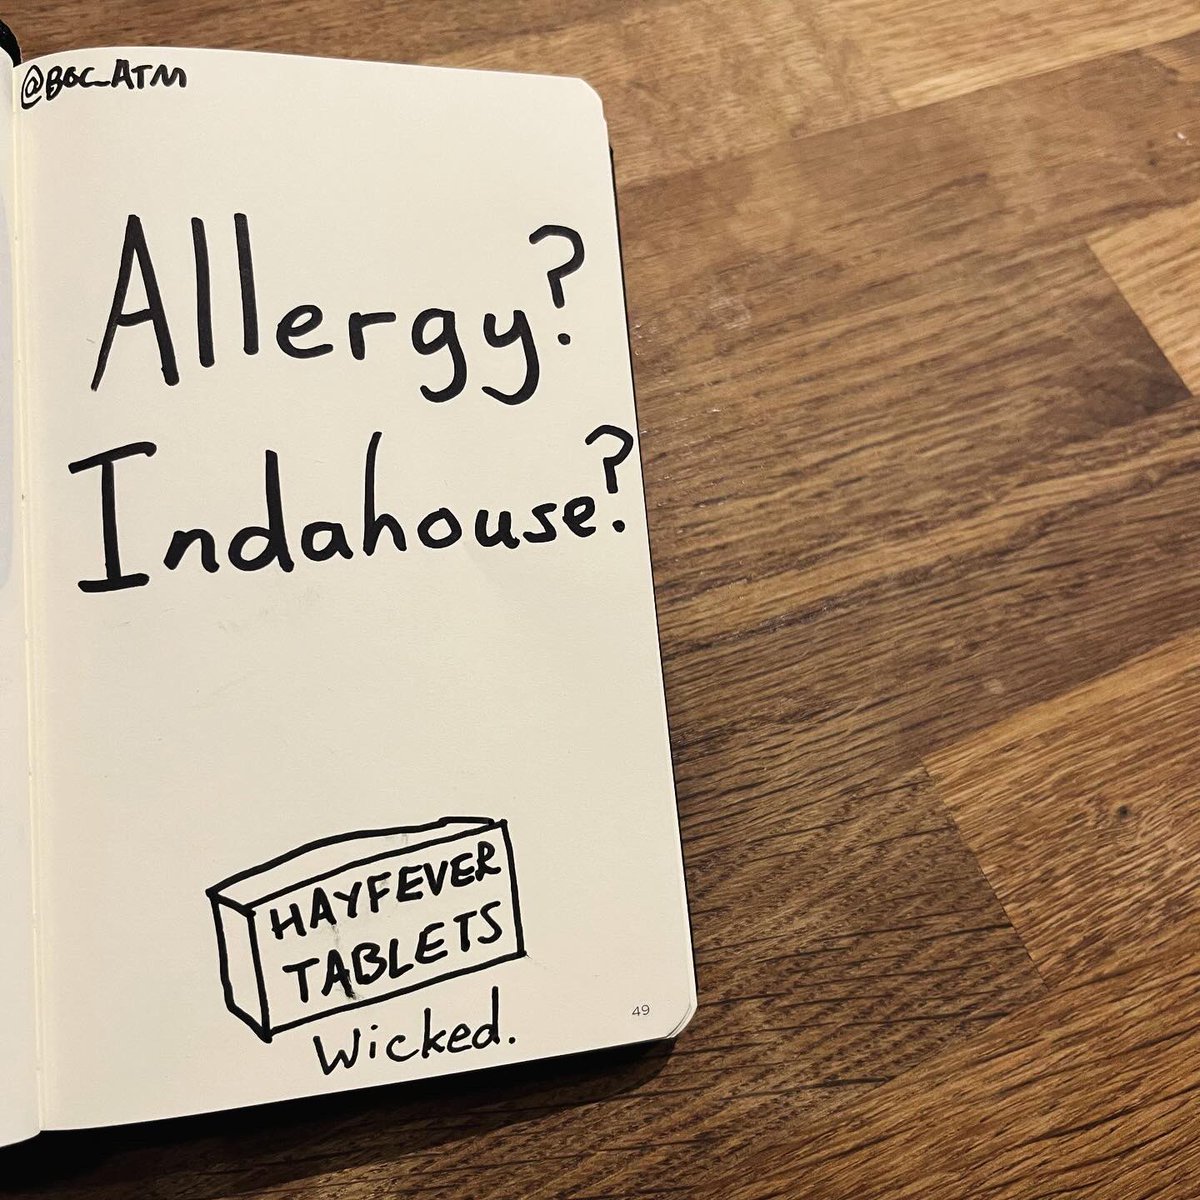 @BGC_ATM
Allergy?
Indahouse?
HAYFEVER
TABLETS
Wicked.
49